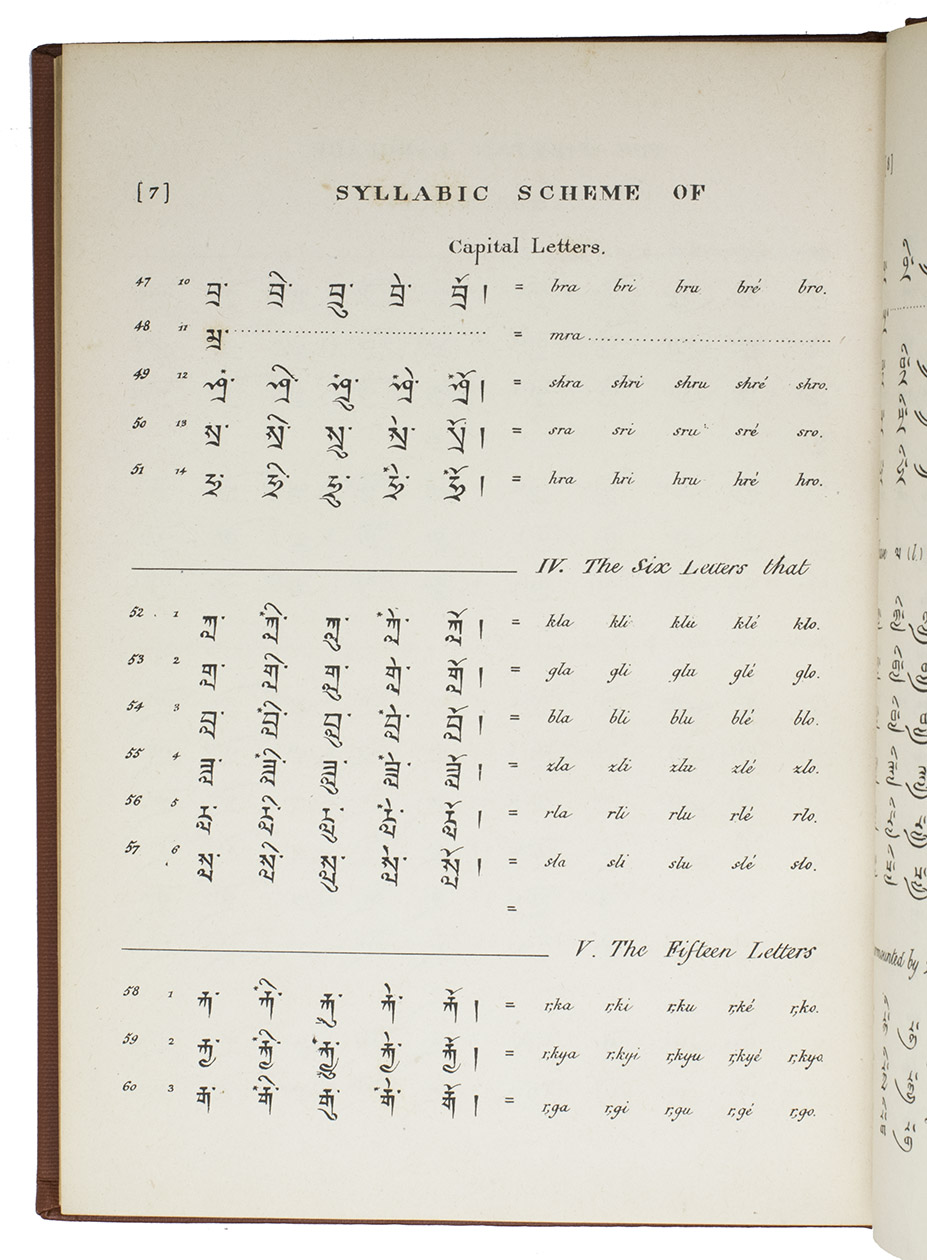 [7] SYLLABIC SCHEME OF
Capital Letters.
47 10 བྲ་ བྲི་ བྲུ་ བྲེ་ བྲོ། = bra bri bru bré bro.
48 11 མྲ་ = mra
49 12 ཤྲ་ ཤྲི་ ཤྲུ་ ཤྲེ་ ཤྲོ། = shra shri shru shré shro.
50 13 སྲ་ སྲི་ སྲུ་ སྲེ་ སྲོ། = sra sri sru sré sro.
51 14 ཧྲ་ ཧྲི་ ཧྲུ་ ཧྲེ་ ཧྲོ། = hra hri hru hré hro.
IV. The Six Letters that
52 1 ཀླ་ *ཀླི་ ཀླུ་ *ཀླེ་ ཀློ། = kla kli klu klé klo.
53 2 གླ་ གླི་ གླུ་ གླེ་ གློ། = gla gli glu glé glo.
54 3 བླ་ *བླི་ བླུ་ *བླེ་ བློ། = bla bli blu blé blo.
55 4 ཟླ་ *ཟླི་ ཟླུ་ *ཟླེ་ ཟློ། = zla zli zlu zlé zlo.
56 5 རླ་ རླི་ རླུ་ རླེ་ རློ། = rla rli rlu rlé rlo.
57 6 སླ་ སླི་ སླུ་ སླེ་ སློ། = sla sli slu slé slo.
=
V. The Fifteen Letters
58 1 རྐ་ *རྐི་ རྐུ་ རྐེ་ རྐོ། = r,ka r,ki r,ku r,ké r,ko.
59 2 རྐྱ་ *རྐྱི་ *རྐྱུ་ རྐྱེ་ རྐྱོ། = r,kya r,kyi r,kyu r,kyé r,kyo
60 3 རྒ་ *རྒི་ རྒུ་ རྒེ་ རྒོ། = r,ga r,gi r,gu r,gé r,go.